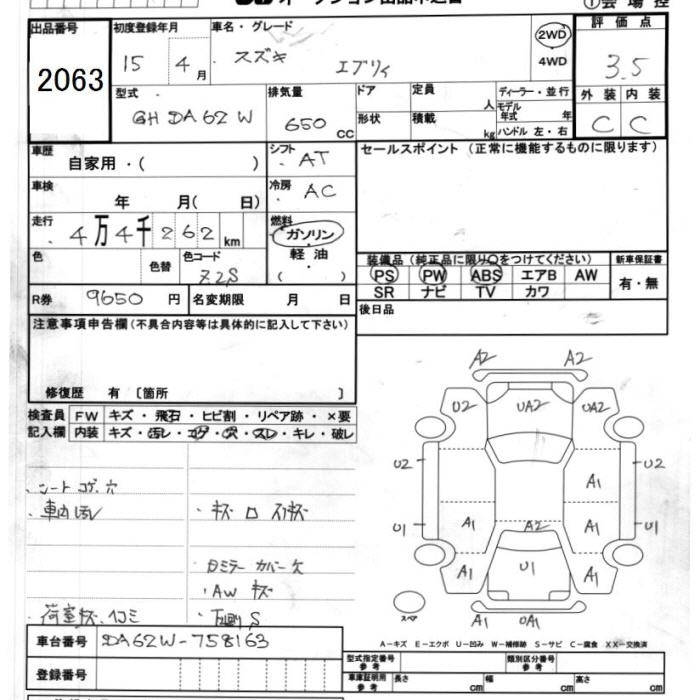 オークション出品申込書
① 会場控
出品番号 初度登録年月 車名・グレード 評価点
2063 15 4 月 スズキ エブリイ 2WD 4WD 3.5
型式 排気量 ドア 定員 人 ディーラー・並行 外装 内装
GH DA62W 650 CC 形状 積載 kg モデル年式 年 ハンドル 左・右 C C
車歴 自家用・( ) シフト AT セールスポイント (正常に機能するものに限ります)
車検 年 月( 日) 冷房 AC
走行 4万4千262 km 燃料 ガソリン
色 色替 色コード Z2S 軽油・( )
装備品(純正品に限り○をつけてください) 新車保証書
PS PW ABS エアB AW 有・無
SR ナビ TV カワ
R券 9650 円 名変期限 月 日 後日品
注意事項申告欄(不具合内容等は具体的に記入して下さい)
修復歴 有 〔箇所 〕
検査員 FW キズ・飛石・ヒビ割・リペア跡・×要
記入欄 内装 キズ・汚レ・コゲ・穴・スレ・キレ・破レ
A2 A2
U2 UA2 UA2
U2 A1 U2
U1 A1 A2 A1 U1
A1 U1 A1
スペア A1 UA1
・シートコゲ.穴
・車内汚レ
・キズ
ミラーカバー欠
・AW キズ
・荷室キズ.ヘコミ ・下廻りS
A-キズ E-エクボ U-凹み W-補修跡 S-サビ C-腐食 XX-交換済
車台番号 DA62W-758163
登録番号
型式指定番号 参考 類別区分番号 参考
車庫証明用 参考 長さ cm 幅 cm 高さ cm